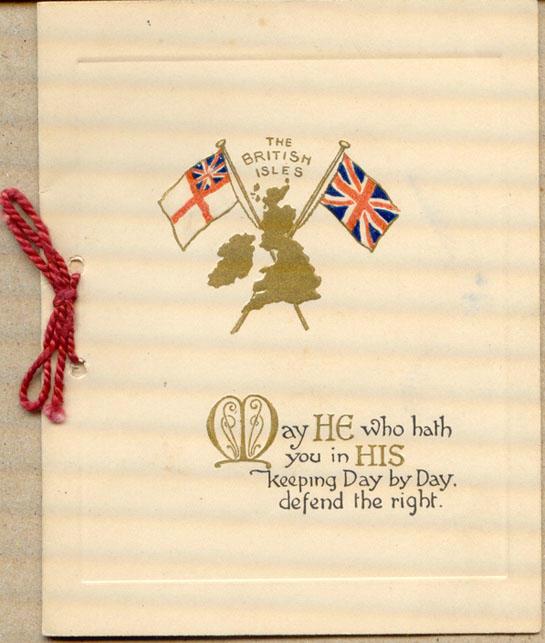 THE
BRITISH
ISLES
May HE who hath
you in HIS
keeping Day by Day.
defend the right.